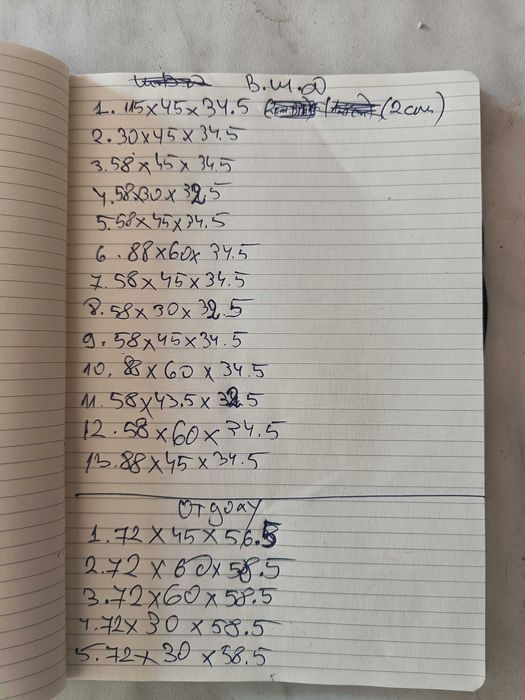 В.Ш.Д
1. 115x45x34.5 (2cm)
2.30x45x34.5
3.58x45x34.5
4.58x30x32.5
5.58x45x34.5
6.88x60x34.5
7.58x45x34.5
8.58x30x32.5
9.58x45x34.5
10.88x60x34.5
11.58x43.5x32.5
12.58x60x34.5
13.88x45x34.5
Отдолу
1.72x45x56.5
2.72x60x58.5
3.72x60x58.5
4.72x30x58.5
5.72x30x58.5